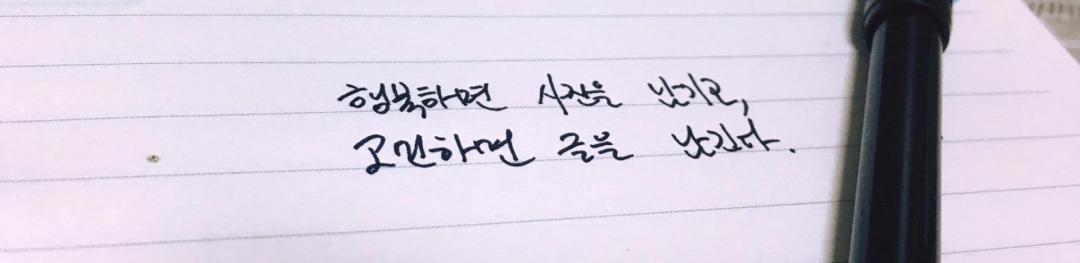 행복하면 사진을 남기고,
고민하면 글을 남긴다.